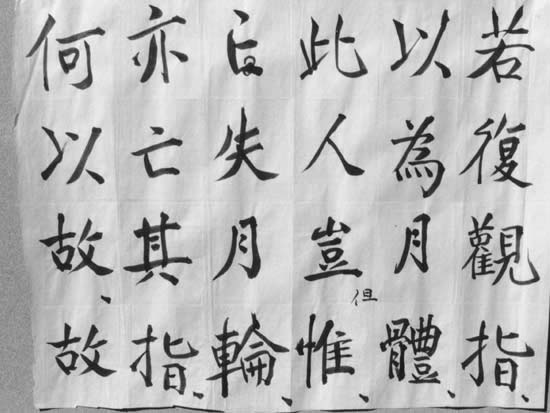 若復觀指、
以為月體、
此人豈惟、
但
亡失月輪、
亦亡其指、
何以故、故